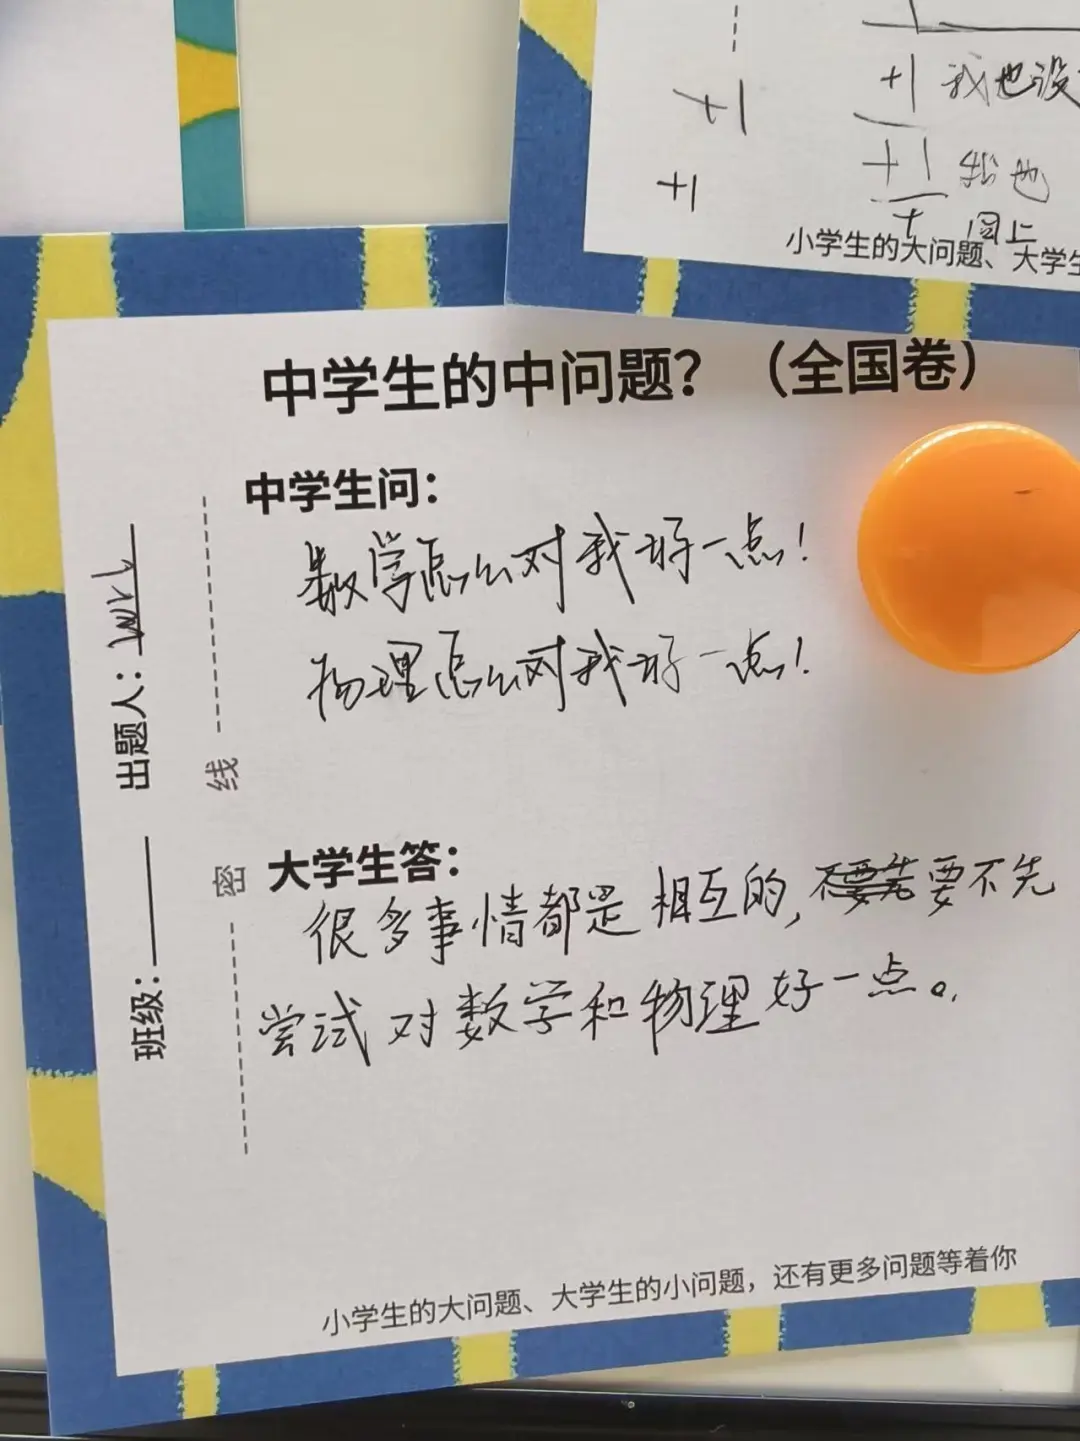 +1
+1
+1 我也没
+1 我也
同上
小学生的大问题、大学生
中学生的中问题？（全国卷）
中学生问：
数学怎么对我好一点！
物理怎么对我好一点！
大学生答：
很多事情都是相互的，不要先要不先
尝试对数学和物理好一点。
小学生的大问题、大学生的小问题，还有更多问题等着你
班级： 出题人：
密 线